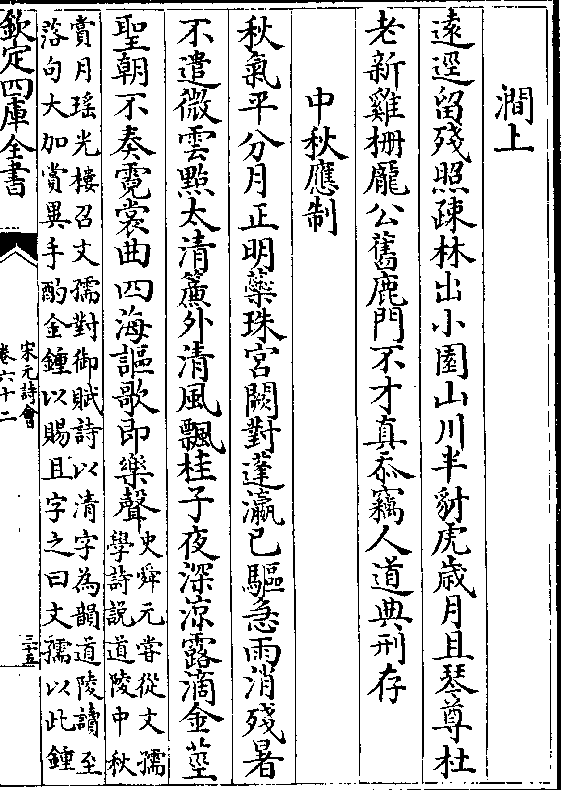 澗上
遠逕留殘照疎林出小園山川半豺虎歳月且琴尊杜
老新雞栅龎公舊鹿門不才真忝竊人道典刑存
中秋應制
秋氣平分月正明蘂珠宮闕對蓬瀛已驅急雨消殘暑
不遣微雲㸃太清簾外清風飄桂子夜深涼露滴金莖
聖朝不奏霓裳曲四海謳歌即樂聲
史舜元嘗從文孺
學詩說道陵中秋
賞月瑤光樓召文孺對御賦詩以清字為韻道陵讀至
落句大加賞異手酌金鍾以賜且字之曰文孺以此鍾
欽定四庫全書
宋元詩會
卷六十二
三十五